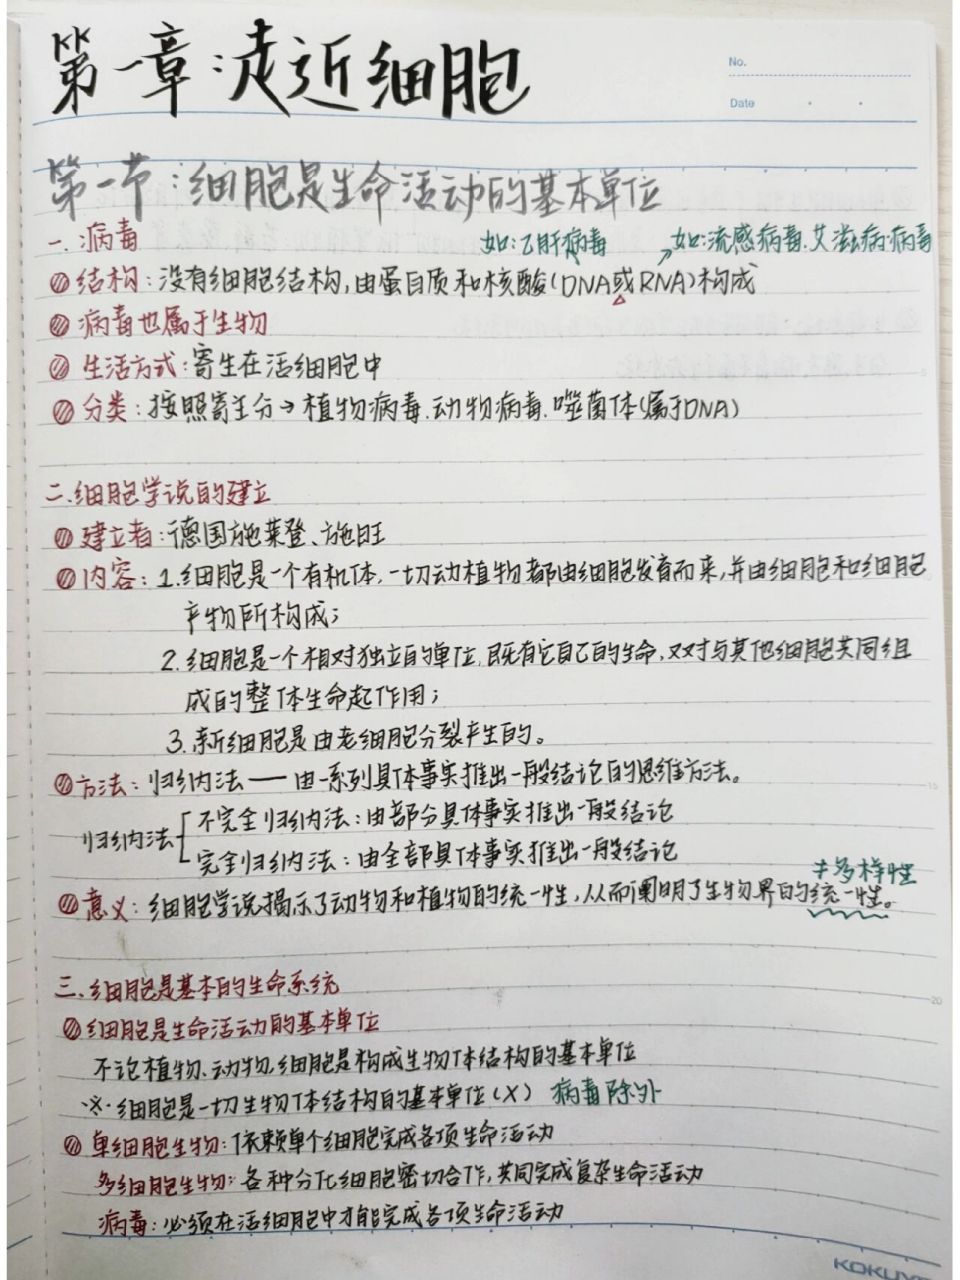 第一章:走近细胞
No.
Date
第一节:细胞是生命活动的基本单位
一.病毒
如:乙肝病毒
如:流感病毒.艾滋病病毒
结构:没有细胞结构,由蛋白质和核酸(DNA或RNA)构成
病毒也属于生物
生活方式:寄生在活细胞中
分类:按照寄主分→植物病毒.动物病毒.噬菌体(属于DNA)
二.细胞学说的建立
建立者:德国施莱登、施旺
内容:1.细胞是一个有机体,一切动植物都由细胞发育而来,并由细胞和细胞
产物所构成;
2.细胞是一个相对独立的单位,既有它自己的生命,又对与其他细胞共同组
成的整体生命起作用;
3.新细胞是由老细胞分裂产生的。
方法:归纳法——由一系列具体事实推出一般结论的思维方法。
归纳法
不完全归纳法:由部分具体事实推出一般结论
完全归纳法:由全部具体事实推出一般结论
≠多样性
意义:细胞学说揭示了动物和植物的统一性,从而阐明了生物界的统一性。
三.细胞是基本的生命系统
细胞是生命活动的基本单位
不论植物、动物,细胞是构成生物体结构的基本单位
※细胞是一切生物体结构的基本单位(X) 病毒除外
单细胞生物:依赖单个细胞完成各项生命活动
多细胞生物:各种分化细胞密切合作,共同完成复杂生命活动
病毒:必须在活细胞中才能完成各项生命活动